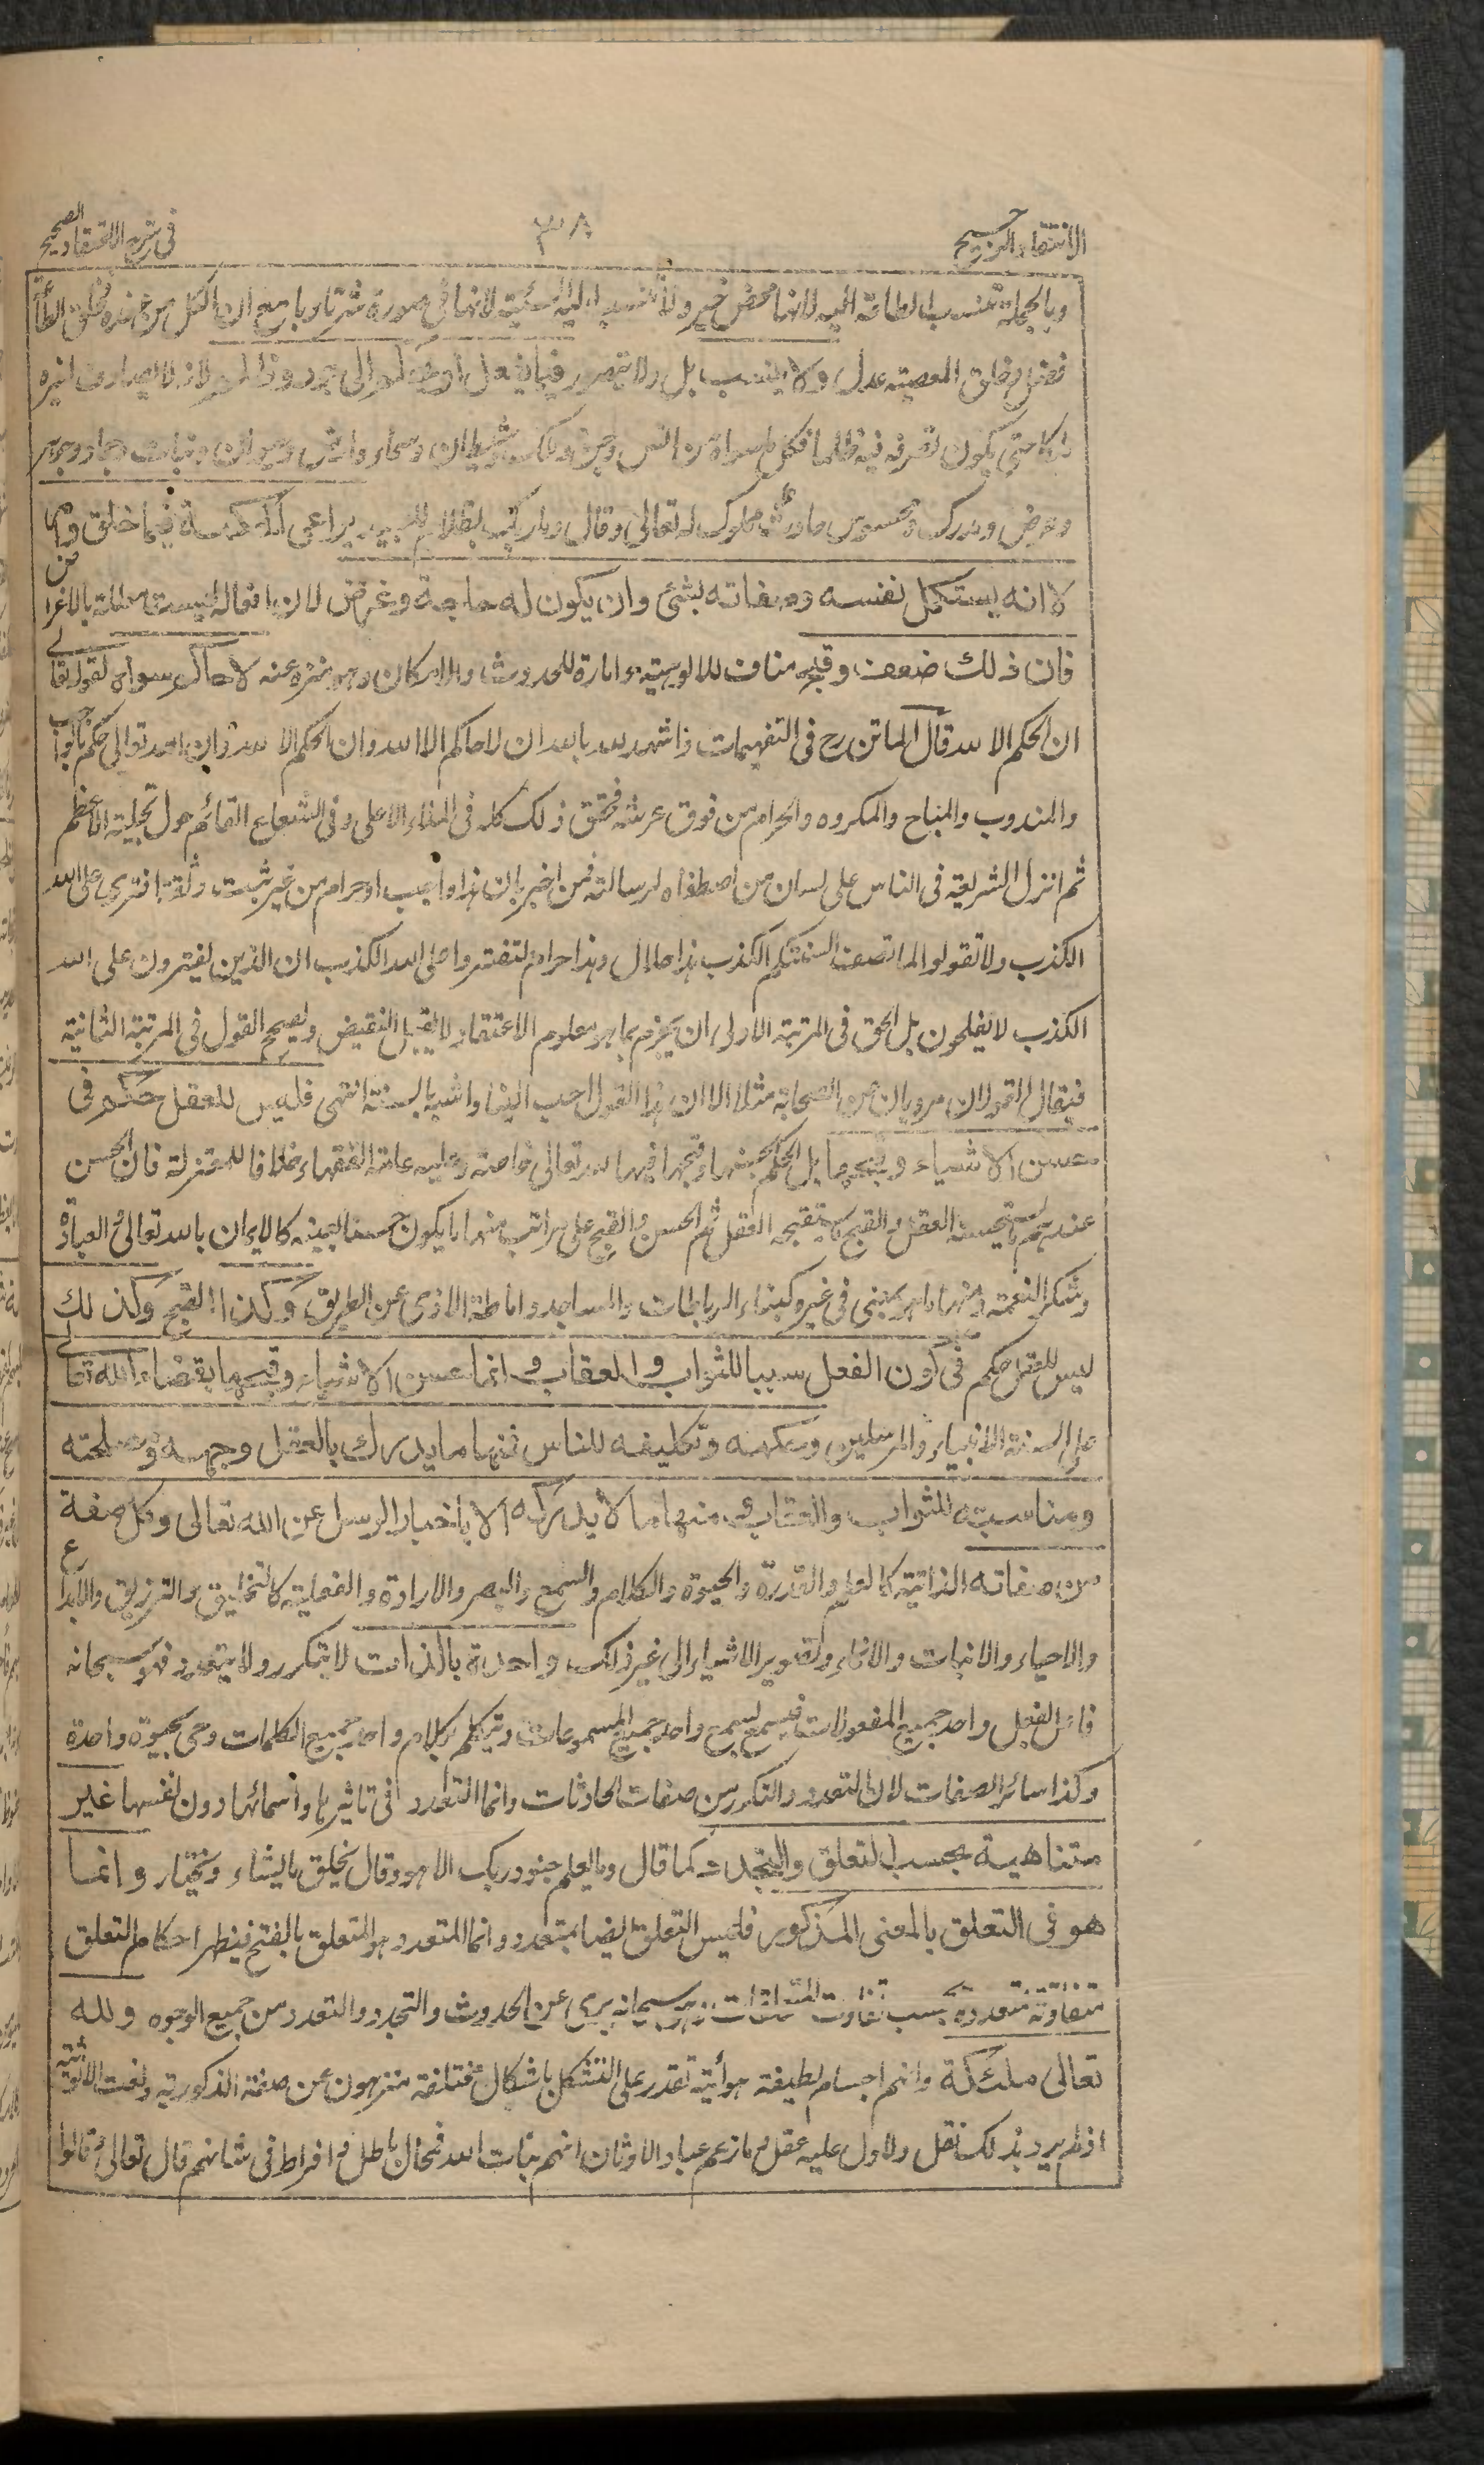 الانتقاد الرجيح
٣٨
في شرح الاعتقاد الصحيح
وبالجملة تنسب الطاعة اليه لانها محض خير ولا تنسب اليه السيئة لانها في صورة شر تأدبا مع ان الكل من عنده فخلق الطاعة
فضل وخلق المعصية عدل ولا ينسب بل ولا يتصور فيما يفعل او يحكم الى جور وظلم لانه لا يصادف لغيره
ملكا حتى يكون تصرفه فيه ظلما فكل ما سواه من انس وجن وملك وشيطان وسماء وارض وحيوان ونبات وجماد وجوهر
وعرض ومدرك ومحسوس حادث مملوك له تعالى وقال وما ربك بظلام للعبيد يراعي الحكمة فيما خلق وامر
لا انه يستكمل نفسه وصفاته بشئ وان يكون له حاجة وغرض لان افعاله ليست معللة بالاغراض
فان ذلك ضعف وقبح مناف للالوهية وامارة للحدوث والامكان وهو منزه عنه لا حاكم سواه لقوله تعالى
ان الحكم الا لله قال الماتن رح في التفهيمات واشهد لله بالله ان لا حاكم الا الله وان الحكم الا لله وان الله تعالى حكم بالوجوب
والمندوب والمباح والمكروه والحرام من فوق عرشه فحقق ذلك كله في الملاء الاعلى وفي الشعاع القائم حول تجليه الاعظم
ثم انزل الشريعة في الناس على لسان من اصطفاه لرسالته فمن اخبر بان هذا واجب او حرام من غير ثبت وثقة افترى على الله
الكذب ولا تقولوا لما تصف السنتكم الكذب هذا حلال وهذا حرام لتفتروا على الله الكذب ان الذين يفترون على الله
الكذب لا يفلحون بل الحق في المرتبة الاولى ان يجزم بما هو معلوم الاعتقاد لا يقبل النقيض ويصحح القول في المرتبة الثانية
فيقال القولان مرويان من الصحابة مثلا الا ان هذا القول احب الينا واشبه بالسنة انتهى فليس للعقل حكم في
حسن الاشياء وقبحها بل الحكم بحسنها وقبحها فيها لله تعالى خاصة وعليه عامة الفقهاء خلافا للمعتزلة فان الحسن
عندهم ما يستحسنه العقل والقبح ما يستقبحه العقل ثم الحسن والقبح على مراتب منها ما يكون حسنا لعينه كالايمان بالله تعالى والعبادة
وشكر النعمة ومنها ما هو لمعنى في غيره كبناء الرباطات والمساجد واماطة الاذى عن الطريق وكذا القبح وكذلك
ليس للعقل حكم في كون الفعل سببا للثواب والعقاب وانما حسن الاشياء وقبحها بقضاء الله تعالى
على السنة الانبياء والمرسلين وحكمه وتكليفه للناس فمنها ما يدرك بالعقل وجهه ومصلحته
ومناسبته للثواب والعقاب ومنها ما لا يدركه الا باخبار الرسل عن الله تعالى وكل صفة
من صفاته الذاتية كالعلم والقدرة والحيوة والكلام والسمع والبصر والارادة والفعلية كالتخليق والترزيق والابداع
والاحياء والانبات والانماء وتصوير الاشياء الى غير ذلك واحدة بالذات لا يتكرر ولا يتعدد فهو سبحانه
فاعل بفعل واحد جميع المفعولات فيسمع بسمع واحد جميع المسموعات ويتكلم بكلام واحد جميع الكلمات وحي بحيوة واحدة
وكذا سائر الصفات لان التعدد والتكرر من صفات الحادثات وانما التعدد في تاثيرها واسمائها دون نفسها غير
متناهية بحسب التعلق والتجدد كما قال وما يعلم جنود ربك الا هو وقال يخلق ما يشاء ويختار وانما
هو في التعلق بالمعنى المذكور فليس التعلق ايضا بمتعدد وانما المتعدد هو المتعلق بالفتح فيظهر احكام التعلق
متفاوتة متعددة بحسب تفاوت المتعلقات فهو سبحانه بري عن الحدوث والتجدد والتعدد من جميع الوجوه ولله
تعالى ملئكة وانهم اجسام لطيفة هوائية تقدر على التشكل باشكال مختلفة منزهون عن صفة الذكورية ونعت الانوثية
اذ لم يرد بذلك نقل ولا دل عليه عقل وما زعم عباد الاوثان انهم بنات الله فمحال باطل وافراط في شانهم قال تعالى وقالوا